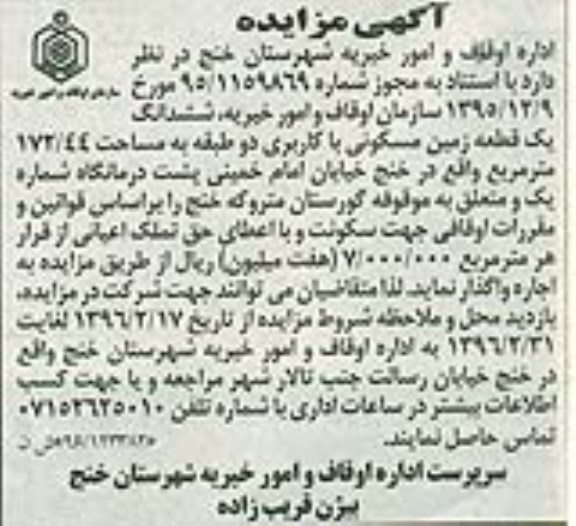 آگهی مزایده
اداره اوقاف و امور خیریه شهرستان خنج در نظر
دارد با استناد به مجوز شماره ۹۵/۱۱۵۹۸۶۹ مورخ
۱۳۹۵/۱۲/۹ سازمان اوقاف و امور خیریه، ششدانگ
یک قطعه زمین مسکونی با کاربری دو طبقه به مساحت ۱۷۲/٤٤
مترمربع واقع در خنج خیابان امام خمینی پشت درمانگاه شماره
یک و متعلق به موقوفه گورستان متروکه خنج را براساس قوانین و
مقررات اوقافی جهت سکونت و با اعطای حق تملک اعیانی از قرار
هر مترمربع ۷/۰۰۰/۰۰۰ (هفت میلیون) ریال از طریق مزایده به
اجاره واگذار نماید. لذا متقاضیان می توانند جهت شرکت در مزایده،
بازدید محل و ملاحظه شروط مزایده از تاریخ ۱۳۹٦/۲/۱۷ لغایت
۱۳۹٦/۲/۳۱ به اداره اوقاف و امور خیریه شهرستان خنج واقع
در خنج خیابان رسالت جنب تالار شهر مراجعه و یا جهت کسب
اطلاعات بیشتر در ساعات اداری با شماره تلفن ۰۷۱۵۲٦۲۵۰۱۰
تماس حاصل نمایند.
سرپرست اداره اوقاف و امور خیریه شهرستان خنج
بیژن قریب زاده